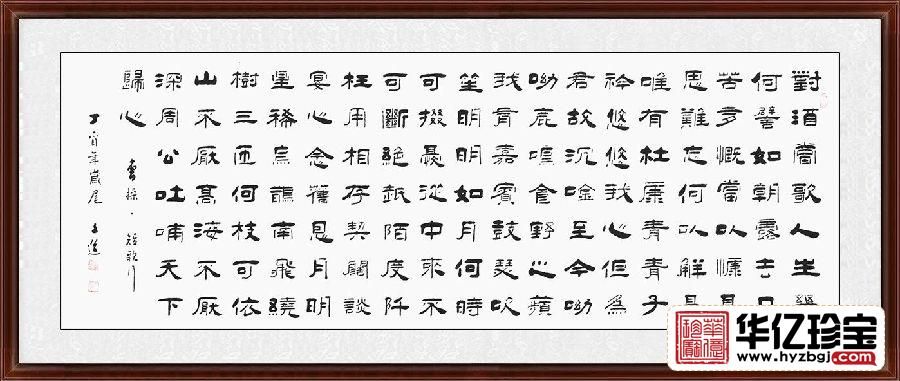 對酒當歌人生幾
何譬如朝露去日
苦多慨當以慷憂
思難忘何以解憂
唯有杜康青青子
衿悠悠我心但為
君故沉唫至今呦
呦鹿鳴食野之蘋
我有嘉賓鼓瑟吹
笙明明如月何時
可掇憂從中來不
可斷絕越陌度阡
枉用相存契闊談
宴心念舊恩月明
星稀烏鵲南飛繞
樹三匝何枝可依
山不厭高海不厭
深周公吐哺天下
歸心
曹操·短歌行
丁酉年歲尾
华亿珍宝
www.hyzbgj.com